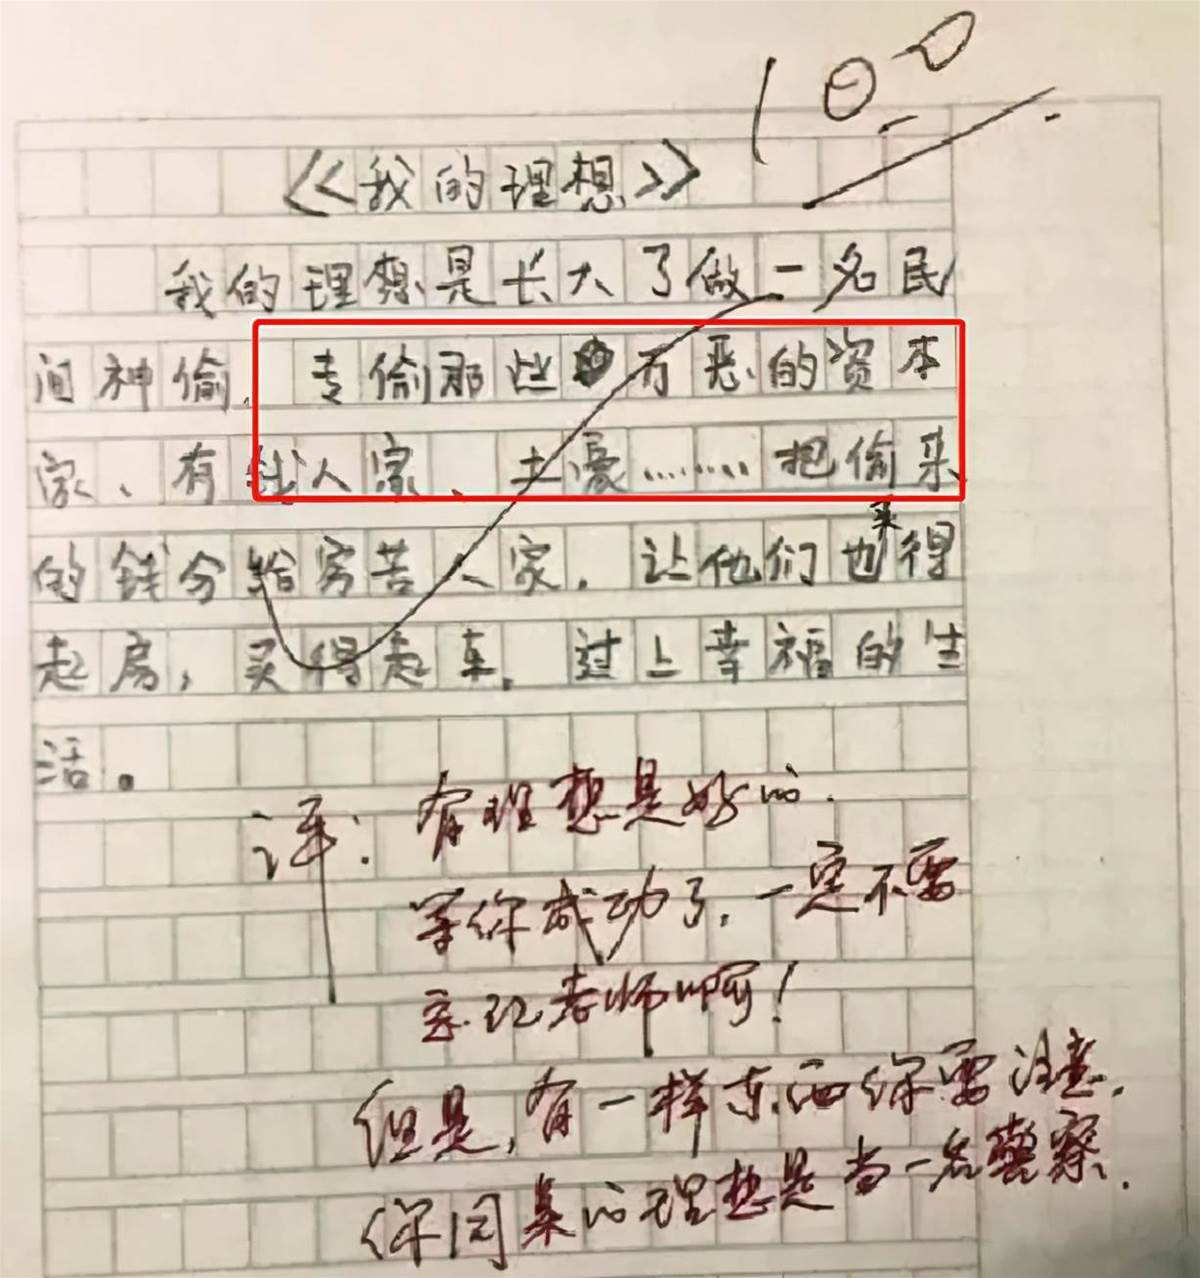 100
《我的理想》
我的理想是长大了做一名民
间神偷，专偷那些万恶的资本
家、有钱人家、土豪………把偷来
的钱分给穷苦人家，让他们也买得
起房，买得起车。过上幸福的生
活。
评：有理想是好的.
等你成功了，一定不要
忘记老师啊！
但是，有一样东西你要注意，
你同桌的理想是当一名警察.